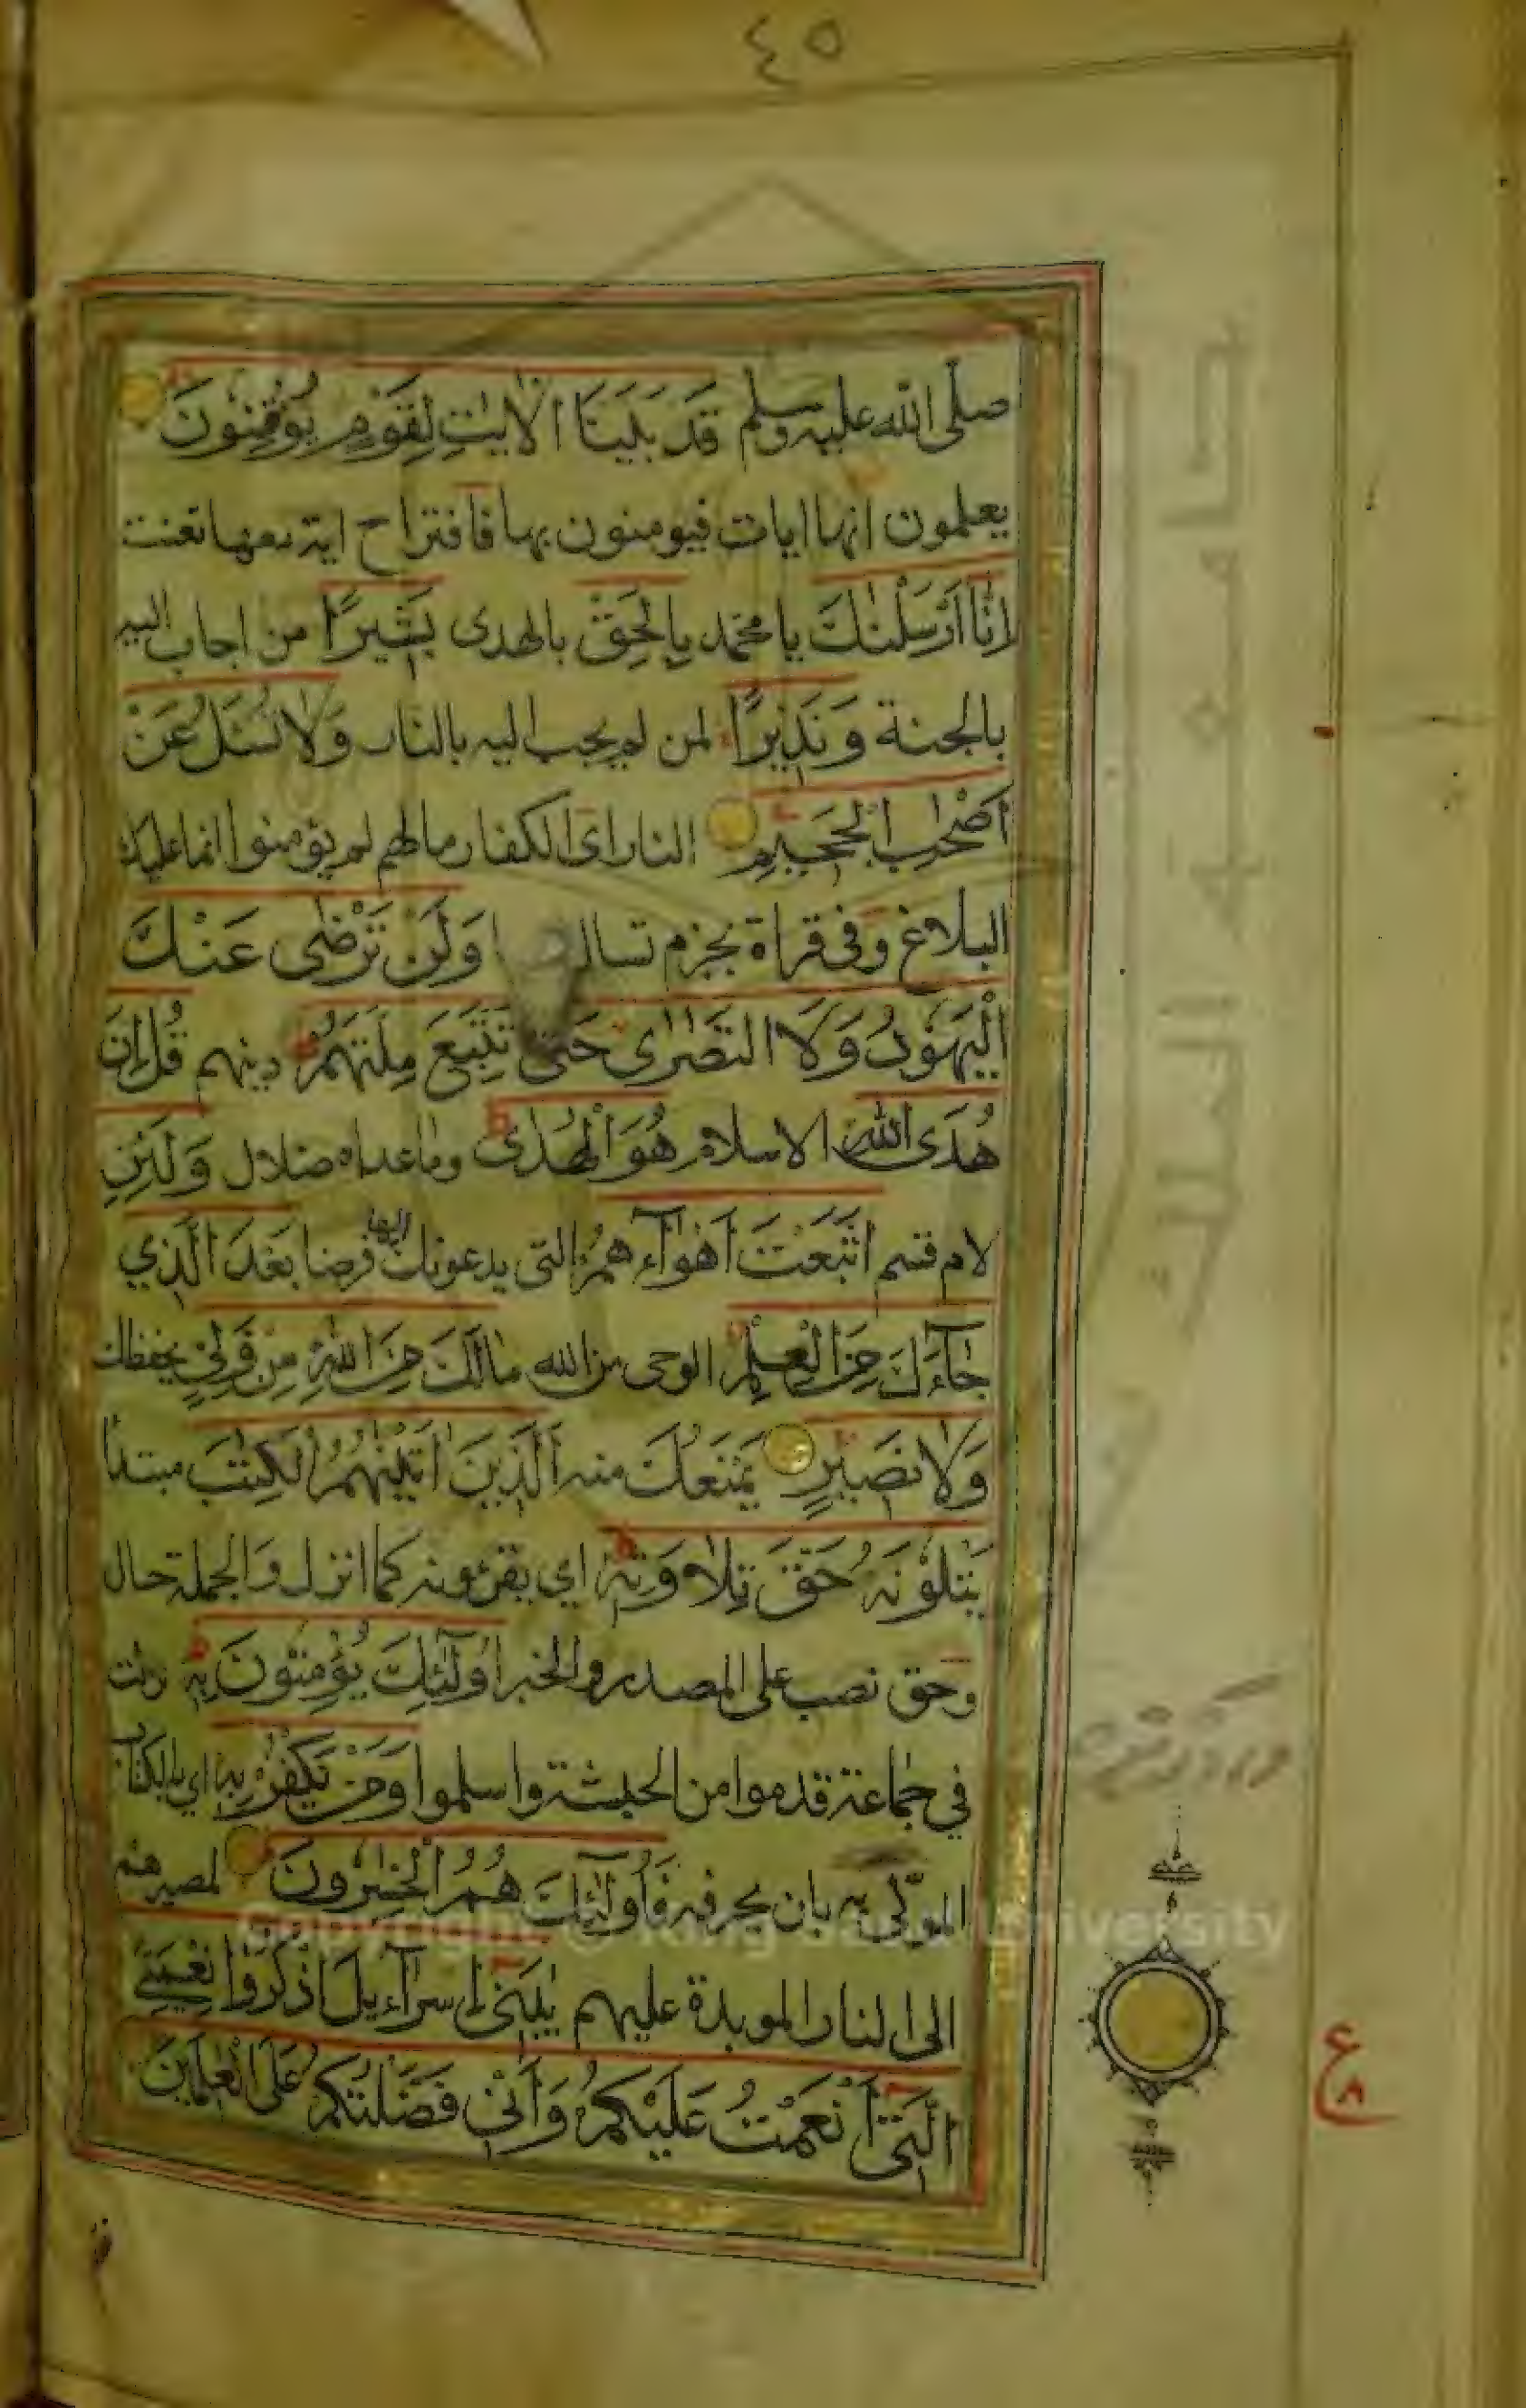 ٤٥
صلى الله عليه وسلم قَدْ بَيَّنَّا الْاٰيٰتِ لِقَوْمٍ يُوْقِنُوْنَ
يعلمون انها ايات فيومنون بها فاقتراح اية معها تعنت
اِنَّا اَرْسَلْنٰكَ يا محمد بِالْحَقِّ بالهدى بَشِيْرًا من اجاب اليه
بالجنة وَنَذِيْرًا لمن لم يجب اليه بالنار وَلَا تُسْئَلُ عَنْ
اَصْحٰبِ الْجَحِيْمِ النار اى الكفار مالهم لم يؤمنوا انما عليك
البلاغ وفى قراة بجزم تسال وَلَنْ تَرْضٰى عَنْكَ
الْيَهُوْدُ وَلَا النَّصٰرٰى حَتّٰى تَتَّبِعَ مِلَّتَهُمْ دينهم قُلْ اِنَّ
هُدَى اللّٰهِ الاسلام هُوَ الْهُدٰى وما عداه ضلال وَلَئِنِ
لام قسم اتَّبَعْتَ اَهْوَآءَهُمْ التى يدعونك اليها فرضا بَعْدَ الَّذِي
جَآءَكَ مِنَ الْعِلْمِ الوحى من الله مَا لَكَ مِنَ اللّٰهِ مِنْ وَّلِيٍّ يحفظك
وَلَا نَصِيْرٍ يمنعك منه اَلَّذِيْنَ اٰتَيْنٰهُمُ الْكِتٰبَ مبتدا
يَتْلُوْنَهٗ حَقَّ تِلَاوَتِهٖ اي يقرءونه كما انزل والجملة حال
وحق نصب على المصدر والخبر اُولٰٓئِكَ يُؤْمِنُوْنَ بِهٖ نزلت
في جماعة قدموا من الحبشة واسلموا وَمَنْ يَّكْفُرْ بِهٖ اي بالكتاب
الموتى به بان يحرفه فَاُولٰٓئِكَ هُمُ الْخٰسِرُوْنَ لمصيرهم
الى النار الموبدة عليهم يٰبَنِيْٓ اِسْرَآءِيْلَ اذْكُرُوْا نِعْمَتِيَ
الَّتِيْٓ اَنْعَمْتُ عَلَيْكُمْ وَاَنِّيْ فَضَّلْتُكُمْ عَلَى الْعٰلَمِيْنَ
ع
٨
Copyright © King Saud University